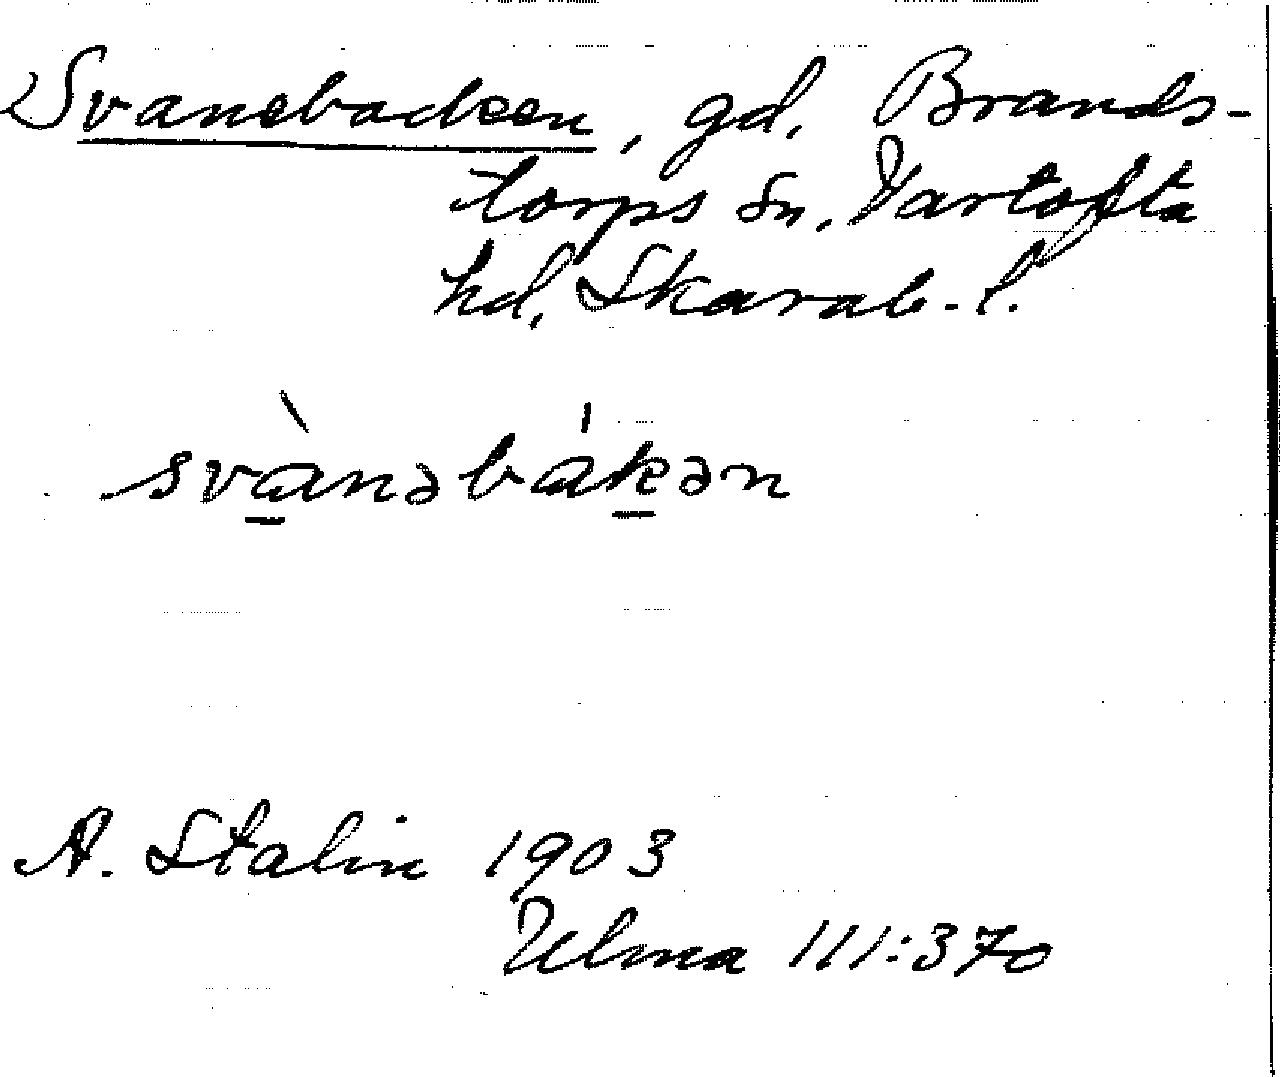 Svanebacken, gd. Brands-
torps sn, Vartofta
hd, Skarab. l.
svànəbákən
A. Stalin 1903
Ulma 111:370